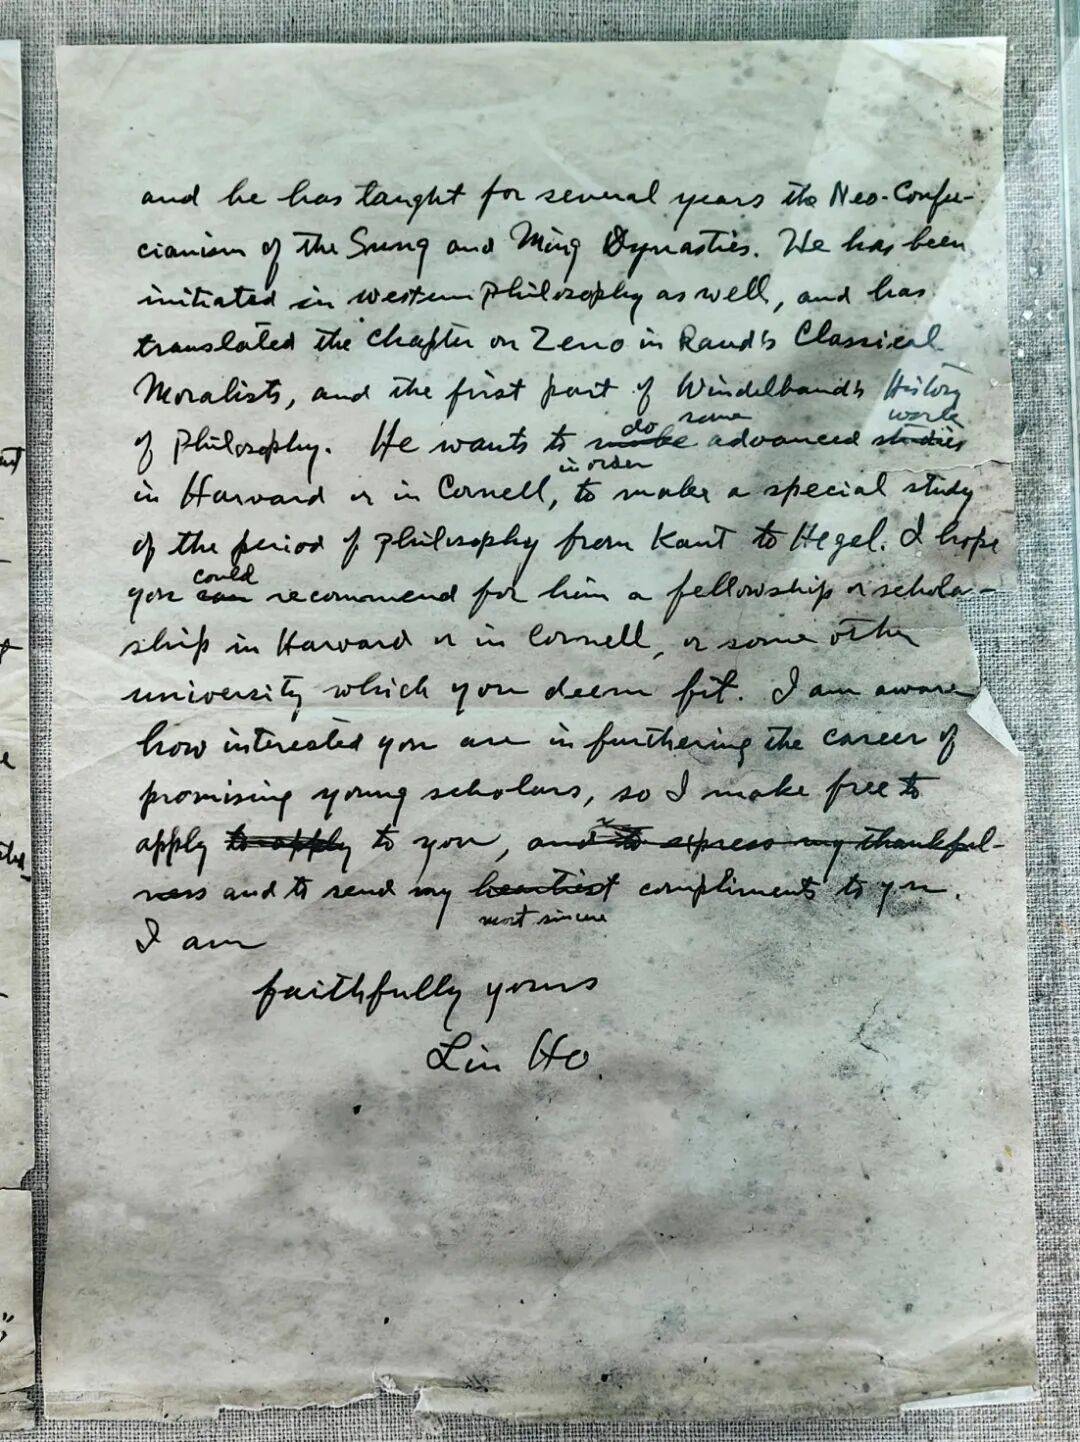 and he has taught for several years the Neo-Confu-
cianism of the Sung and Ming Dynasties. He has been
initiated in western philosophy as well, and has
translated the chapter on Zeno in Rand's Classical
Moralists, and the first part of Windelband's History
do some work
of Philosophy. He wants to make advanced studies
in order
in Harvard or in Cornell, to make a special study
of the period of philosophy from Kant to Hegel. I hope
could
you can recommend for him a fellowship or schola-
ship in Harvard or in Cornell, or some other
university which you deem fit. I am aware
how interested you are in furthering the career of
promising young scholars, so I make free to
apply to apply to you, and to express my thankful-
ness and to send my heartiest compliments to you.
most sincere
I am
faithfully yours
Lin Ho.